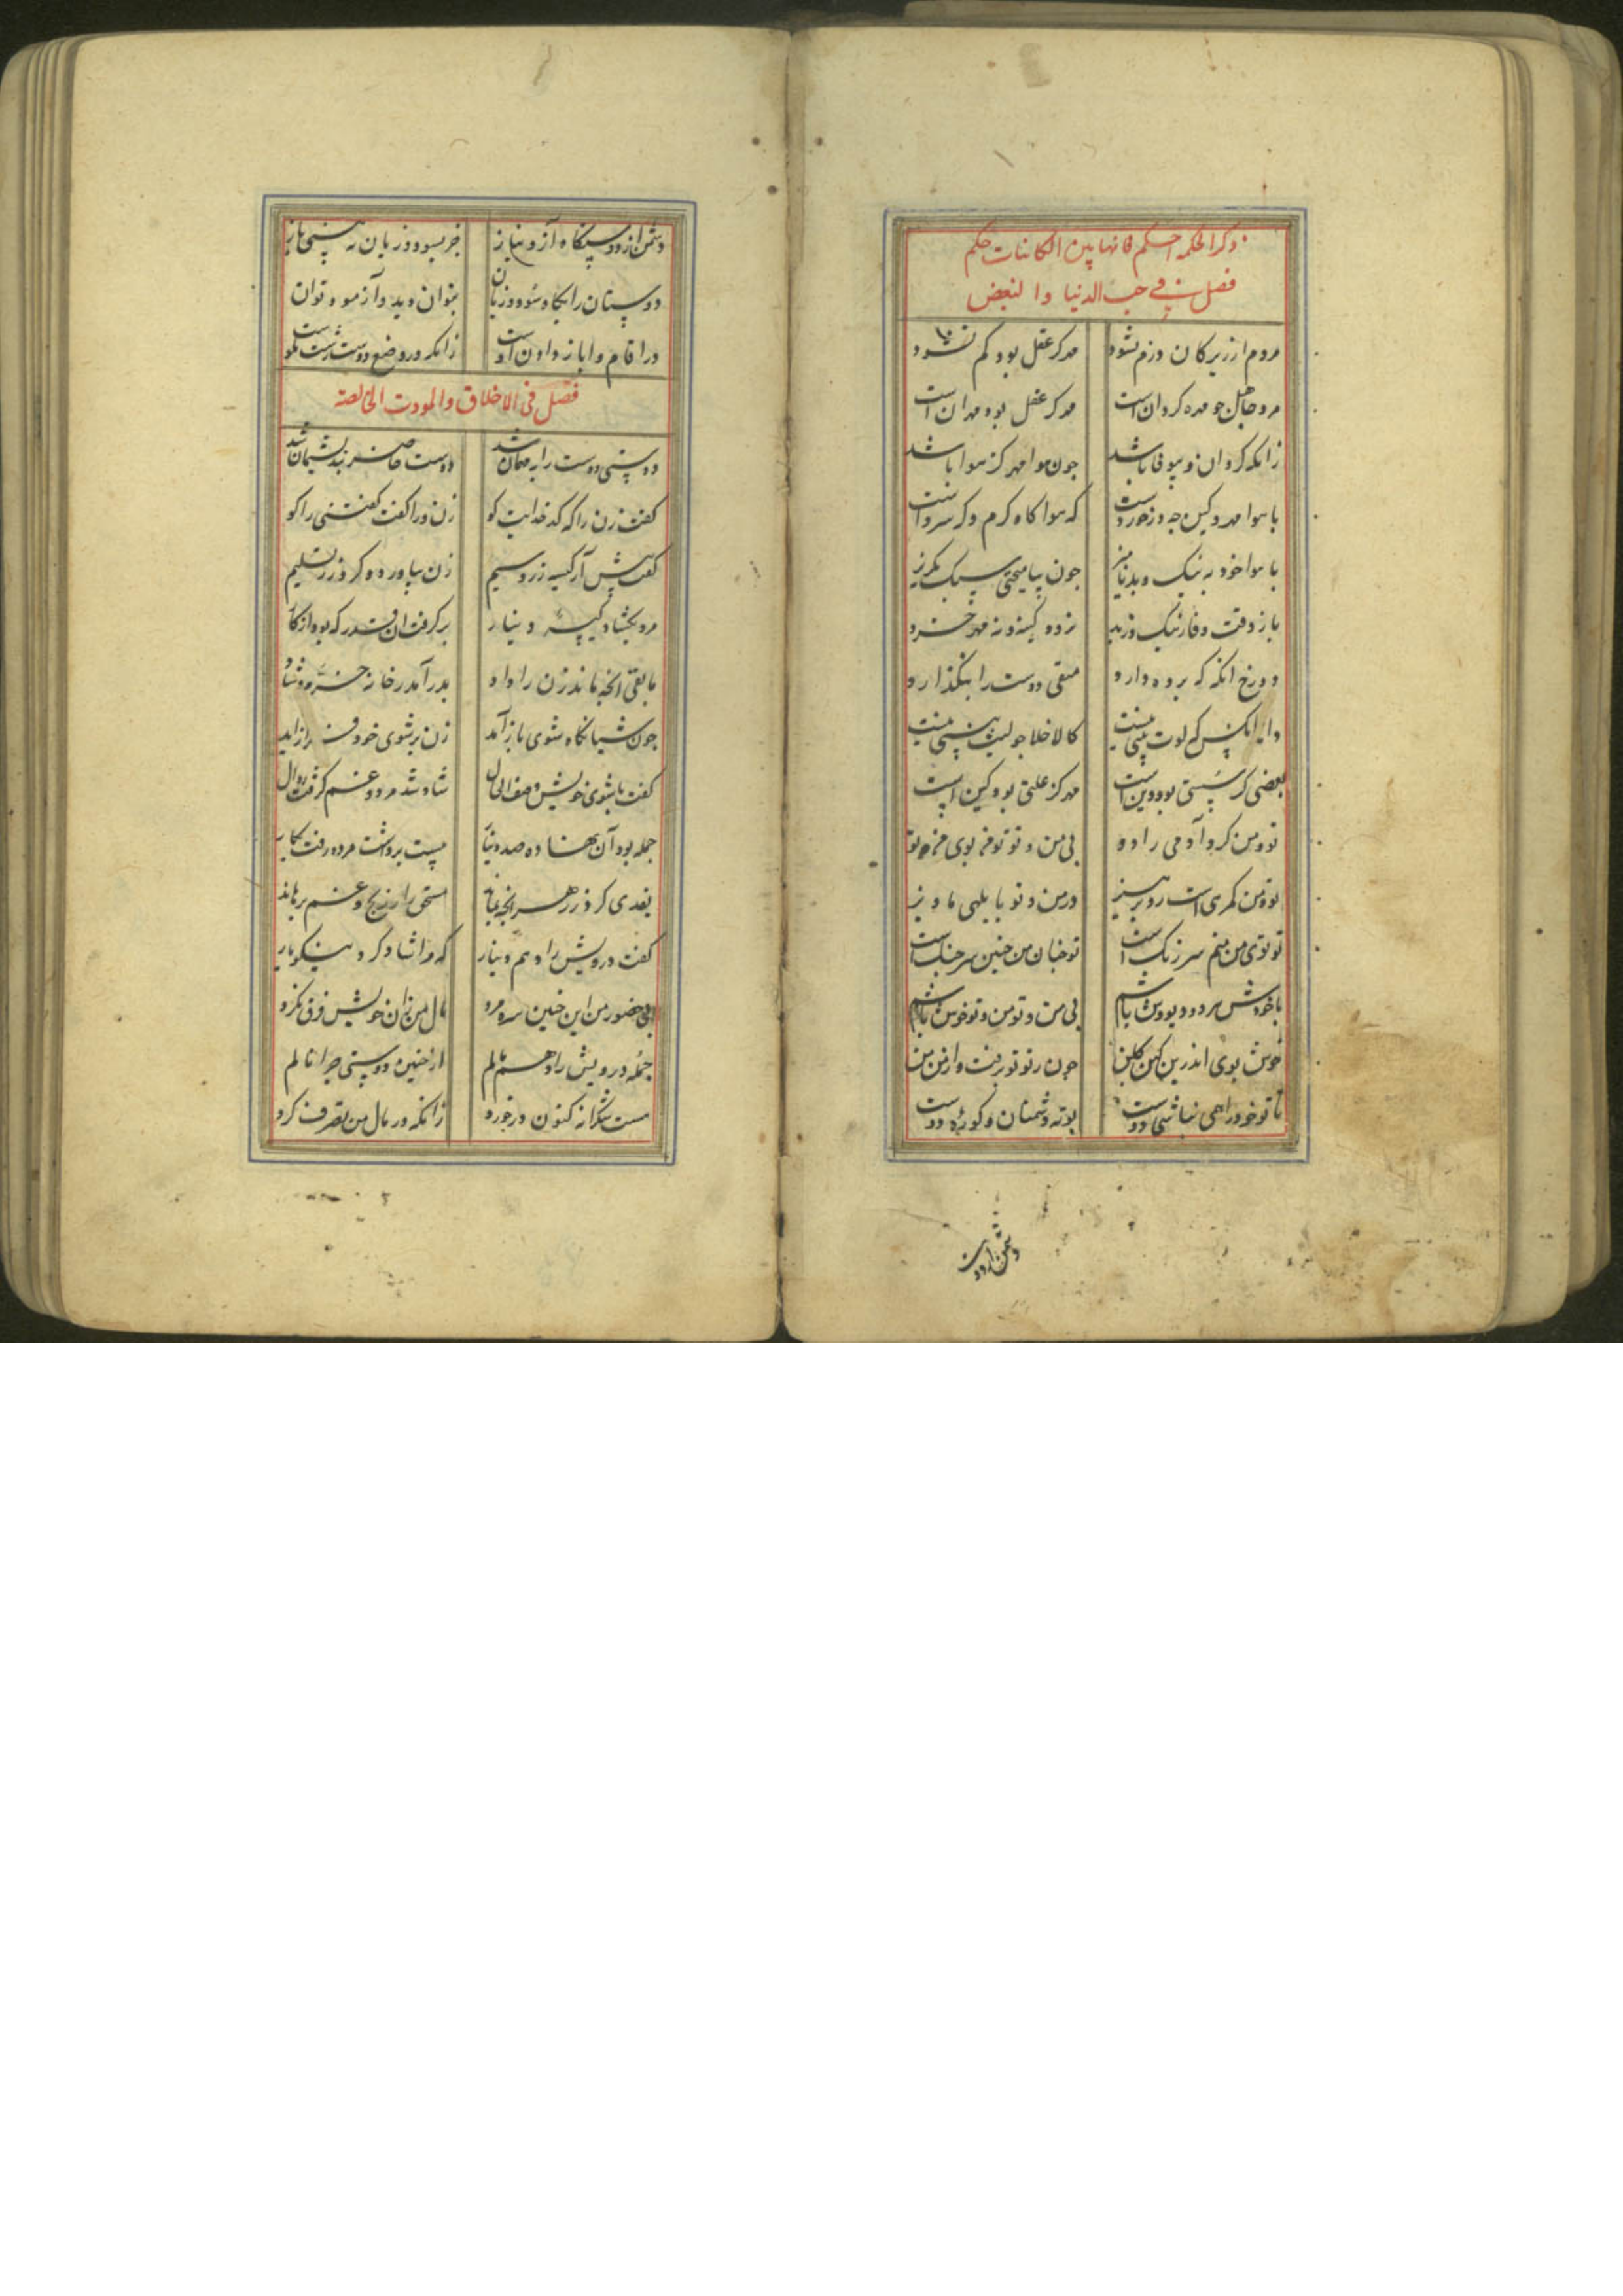 ذکر الحکمة احکم فانها بین الکاینات حکم
فصل فی حب الدنیا والبغض
مردم از زیرکان دزم نشود مهر کز عقل بود کم نشود
مرد جاهل جو مهره کردانست مهر کز عقل بود مهر آنست
زانکه کردان و بیوفا باشد جون هوا مهر کز هوا باشد
با هوا مهر و کین جه درخوردست که هوا کاه کرم و که سردست
با هوا خود به نیک و بد نامیز جون بیامیختی سبک بکریز
باز وقت وفا ز نیک و ز بد نزود کینه و نه مهر خرد
دوزخ آنکه که برده دارد متقی دوست را بنکذارد
کالاخلا جو لیت نیست
بغضی کز بود دینست مهر کز علتی بود کینست
تو و من کرد آدمی را دو بی من و تو تو من بوی من تو
تو و من کمری است رو بستیز در من و تو بابلهی ماویز
تو توی من منم سر زنک است تو خیان من جنین سر جنک است
با خودش مرد و دیو وش باشم بی من و تو من و تو خوش باشم
خوش بوی اندرین کهن کلبن جون ز تو تو برفت و از من من
تا تو خود را همی نباشی دوست بوته دشمنان و کوره دوست
دشمن از دوست
دشمن از دوست کاه آز و نیاز جز بسود و زیان نه بینی باز
دوستان را بکاه سود و زیان بتوان دید و آزمود توان
زانکه در وضع دوست
فصل فی الاخلاق والمودت الخالصة
دوستی دوست را به مهمان شد دوست حاضر نبد پشیمان شد
کفت زن را که کدخدایت کو زن ورا کفت کفتنی را کو
کفت پیش آر کیسه زر و سیم زن بیاورد و کرد زر تسلیم
مرد بکشاد کیسه دینار برکرفت ان قدر که بود از کار
مابقی انچه ماند زن را داد بدر آمد ز خانه خرم و شاد
جون شبانکاه شوی باز آمد زن بر شوی خود فراز آمد
کفت با شوی خویش وصف الحال شاد شد مرد و غم کرفت زوال
جمله بود آن بها ده صد دینار بیست برداشت مرد و رفت بکار
بعدی کرد زر هر انچه بماند مستحق را ز رنج و غم برهاند
کفت درویش را دهم دینار که مرا شاد کرد نیکو یار
بی حضور من این جنین سره مرد مال من زان خویش فرق نکرد
جمله درویش را دهم مالم از جنین دوستی جرا نالم
هست شکرانه کنون درخورد زانکه در مال من تصرف کرد